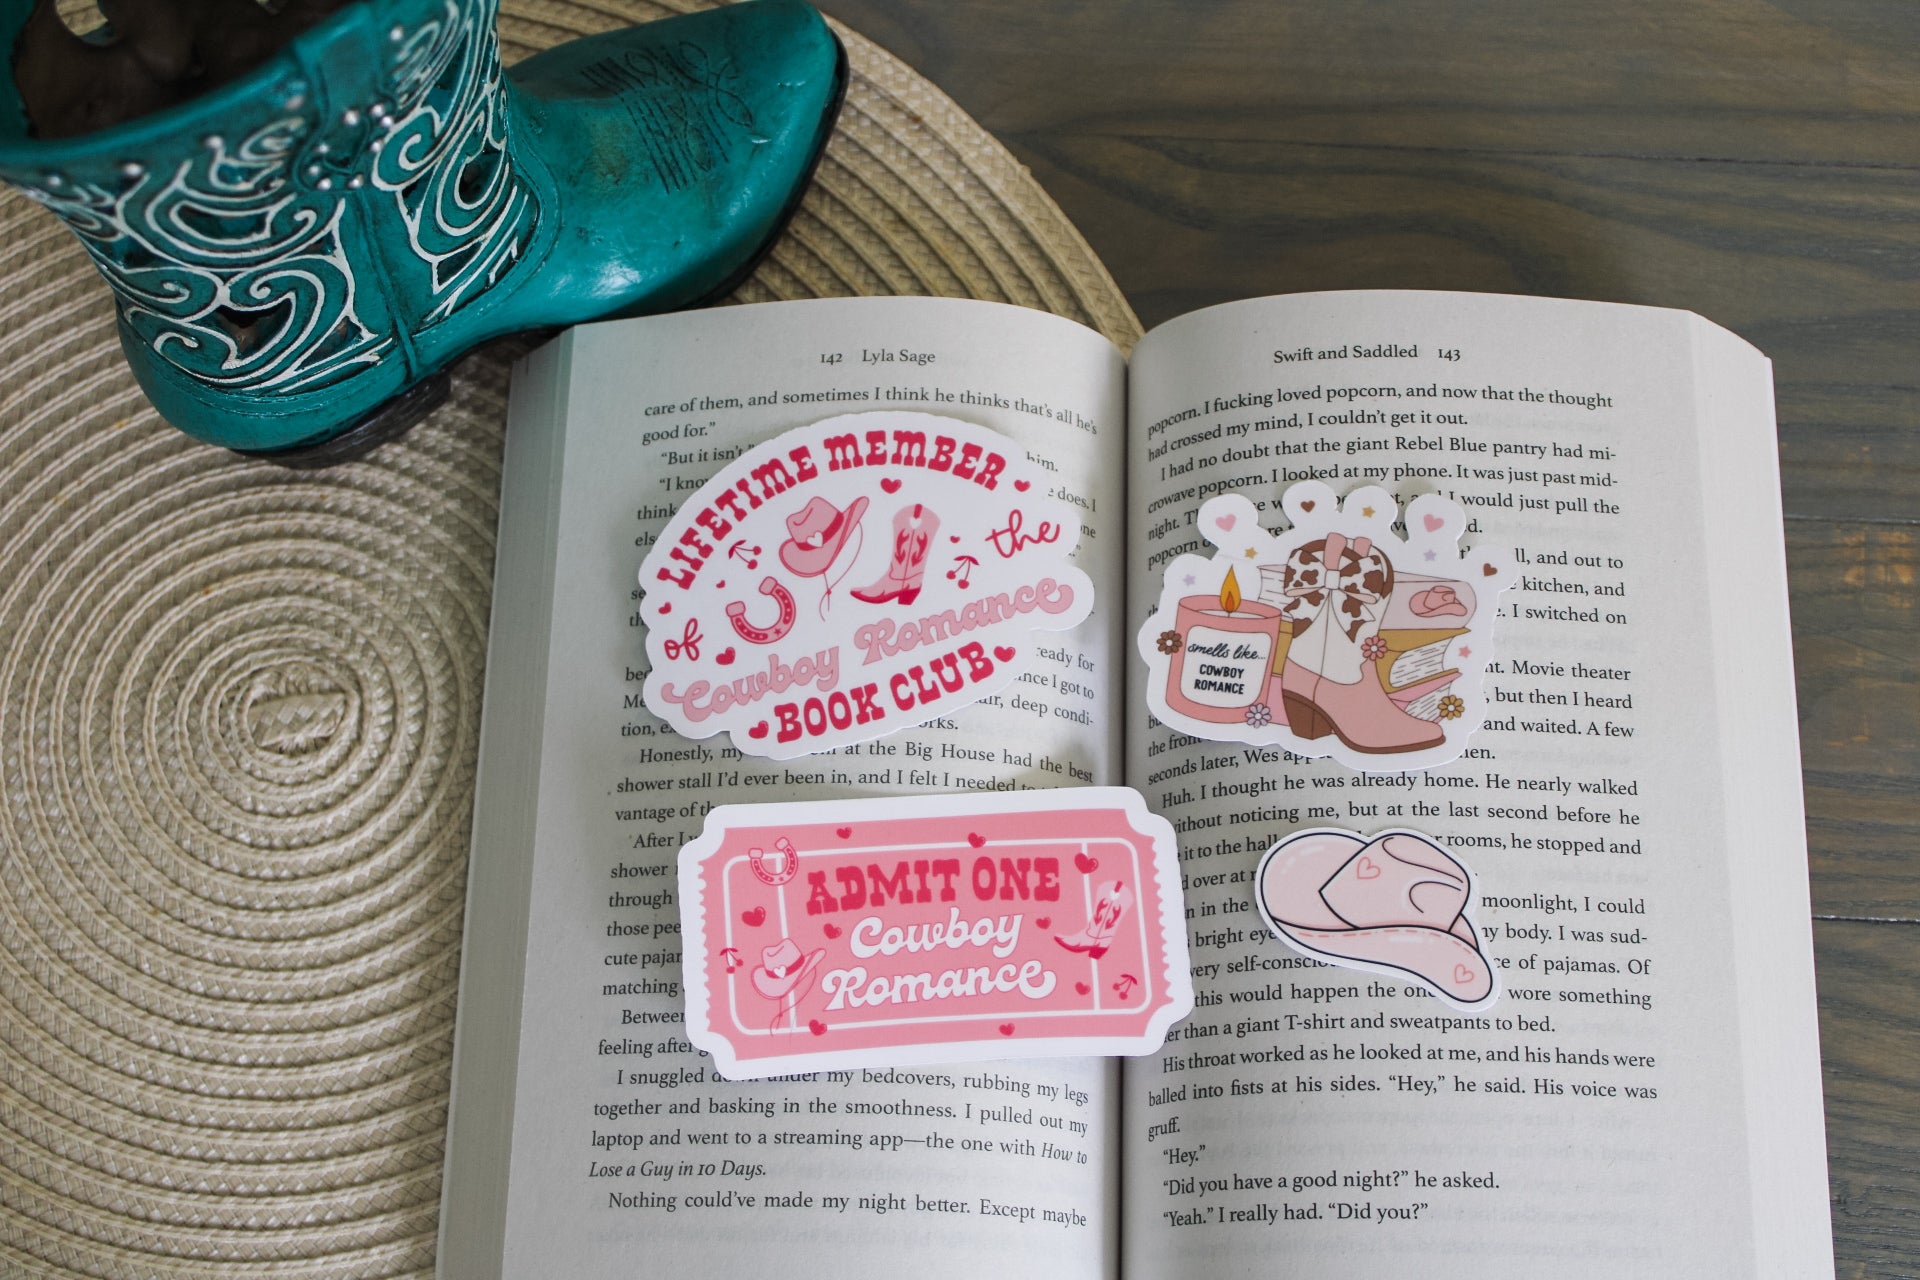 142 Lyla Sage
care of them, and sometimes I think he thinks that's all he's
good for."
"But it isn't
him.
"I know
does. I
think
one
bed
ready for
Me
ince I got to
air, deep condi-
tion, ex
Honestly, my at the Big House had the best
shower stall I'd ever been in, and I felt I needed
vantage of th
After I
shower
through
those pee
cute pajam
matching
Between
feeling after
I snuggled down under my bedcovers, rubbing my legs
together and basking in the smoothness. I pulled out my
laptop and went to a streaming app—the one with How to
Lose a Guy in 10 Days.
Nothing could've made my night better. Except maybe
LIFETIME MEMBER
of the
Cowboy Romance
BOOK CLUB
ADMIT ONE
Cowboy
Romance
Swift and Saddled 143
popcorn. I fucking loved popcorn, and now that the thought
had crossed my mind, I couldn't get it out.
I had no doubt that the giant Rebel Blue pantry had mi-
crowave popcorn. I looked at my phone. It was just past mid-
night. I would just pull the
popcorn
ll, and out to
kitchen, and
. I switched on
nt. Movie theater
, but then I heard
and waited. A few
the front
seconds later, Wes app
Huh. I thought he was already home. He nearly walked
without noticing me, but at the last second before he
it to the hall rooms, he stopped and
d over at
n in the moonlight, I could
bright eye my body. I was sud-
very self-conscious ce of pajamas. Of
this would happen the one wore something
er than a giant T-shirt and sweatpants to bed.
His throat worked as he looked at me, and his hands were
balled into fists at his sides. "Hey," he said. His voice was
gruff.
"Hey."
"Did you have a good night?" he asked.
"Yeah." I really had. "Did you?"
smells like...
COWBOY
ROMANCE